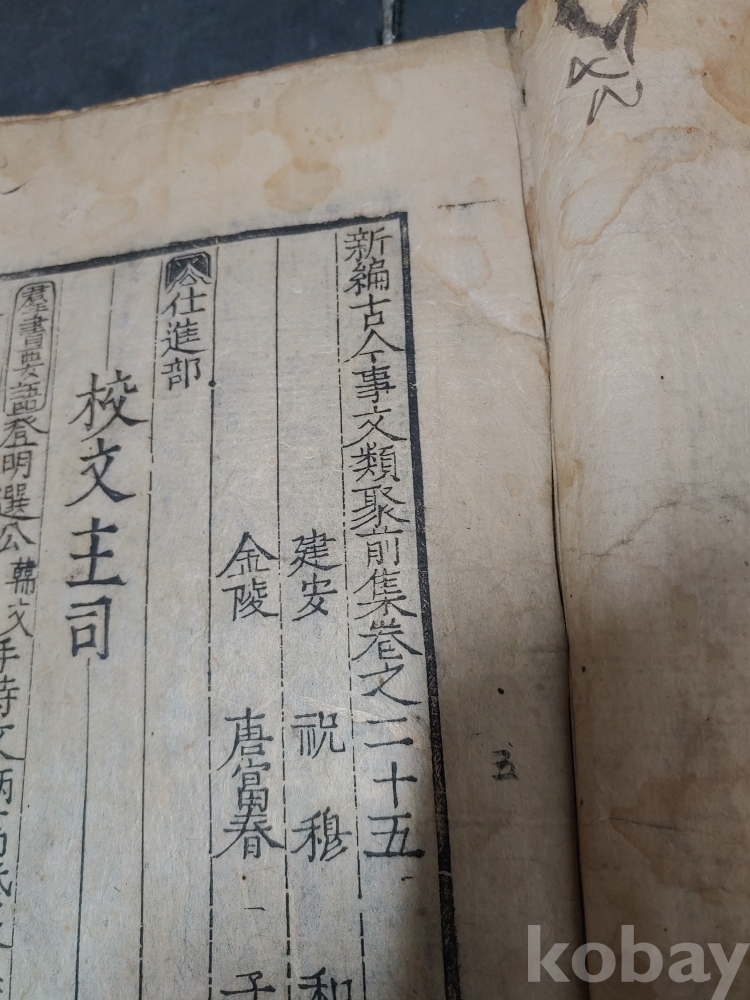 新編古今事文類聚前集卷之二十五
建安 祝 穆 和
金陵 唐富春 子
仕進部
校文主司
群書要語登明選公韓文
五
kobay